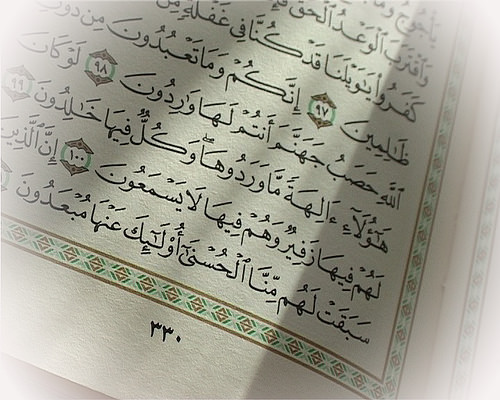 يَأْجُوجُ وَمَ
وَٱقْتَرَبَ ٱلْوَعْدُ ٱلْحَقُّ فَإِ
كَفَرُوا۟ يَٰوَيْلَنَا قَدْ كُنَّا فِى غَفْلَةٍ مِّنْ
ظَٰلِمِينَ ٩٧ إِنَّكُمْ وَمَا تَعْبُدُونَ مِن دُونِ
ٱللَّهِ حَصَبُ جَهَنَّمَ أَنتُمْ لَهَا وَٰرِدُونَ ٩٨ لَوْ كَانَ
هَٰٓؤُلَآءِ ءَالِهَةً مَّا وَرَدُوهَا وَكُلٌّ فِيهَا خَٰلِدُونَ ٩٩
لَهُمْ فِيهَا زَفِيرٌ وَهُمْ فِيهَا لَا يَسْمَعُونَ ١٠٠ إِنَّ ٱلَّذِينَ
سَبَقَتْ لَهُم مِّنَّا ٱلْحُسْنَىٰٓ أُو۟لَٰٓئِكَ عَنْهَا مُبْعَدُونَ
٣٣٠